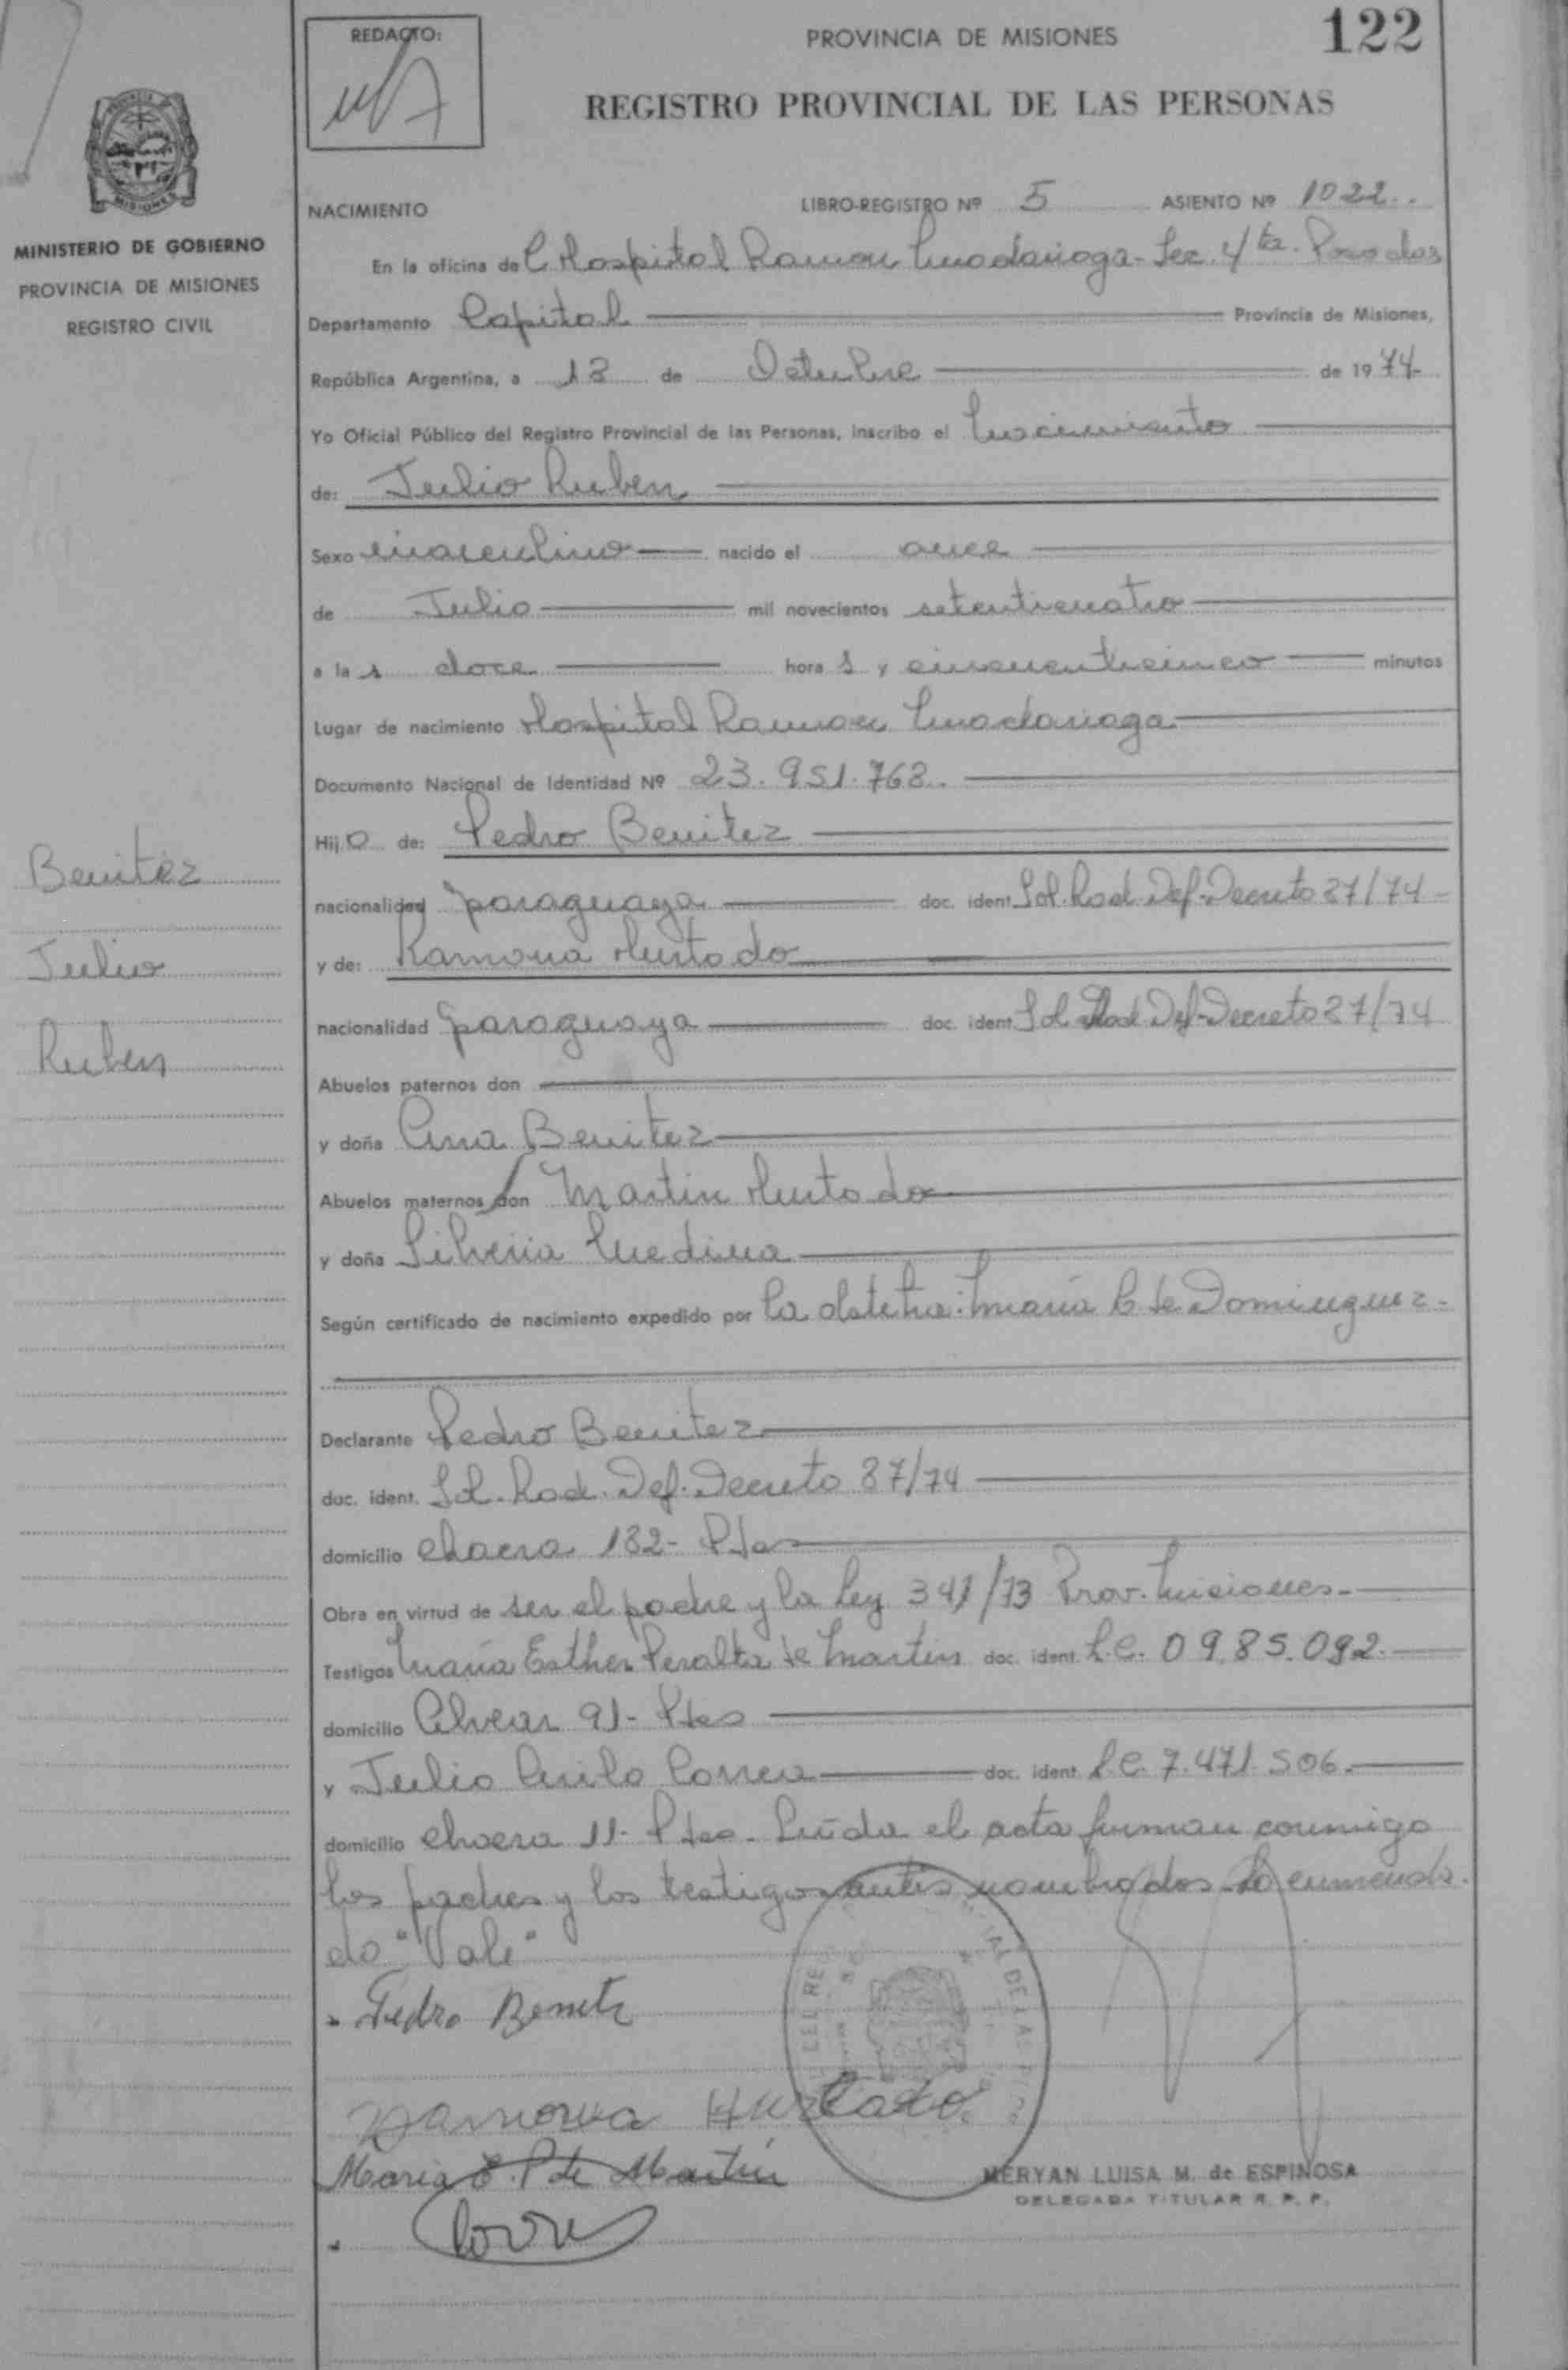 REDACTO:
PROVINCIA DE MISIONES
122
REGISTRO PROVINCIAL DE LAS PERSONAS
MISIONES
MINISTERIO DE GOBIERNO
PROVINCIA DE MISIONES
REGISTRO CIVIL
NACIMIENTO
LIBRO-REGISTRO Nº 5 ASIENTO Nº 1022.
En la oficina del Hospital Ramon Madariaga - Sec. 4ta. Posadas
Departamento Capital Provincia de Misiones,
República Argentina, a 13 de Octubre de 1974-
Yo Oficial Público del Registro Provincial de las Personas, inscribo el Nacimiento
de: Julio Ruben
Sexo masculino nacido el once
de Julio mil novecientos setenticuatro
a la s doce hora s y cincuenticinco minutos
Lugar de nacimiento Hospital Ramon Madariaga
Documento Nacional de Identidad Nº 23.951.763.
Hijo de: Pedro Benitez
nacionalidad paraguaya doc. ident. Sol. Rad. Def. Decreto 87/74-
y de: Ramona Hurtado
nacionalidad paraguaya doc. ident. Sol. Rad. Def. Decreto 87/74
Benitez
Julio
Ruben
Abuelos paternos don
y doña Ana Benitez
Abuelos maternos don Martin Hurtado
y doña Silveria Medina
Según certificado de nacimiento expedido por la obstetra: Maria C de Dominguez-
Declarante Pedro Benitez
doc. ident. Sol. Rad. Def. Decreto 87/74
domicilio chacra 132- Pdas
Obra en virtud de ser el padre y la Ley 341/73 Prov. Misiones-
Testigos Maria Esther Peralta de Martin doc. ident. L.C. 0985.092.
domicilio Alvear 91- Pdas
y Julio Correa doc. ident. L.E. 7.471.506.
domicilio chacra 11- Pdas- Leida el acta firman conmigo
los padres y los testigos antes nombrados. Lo enmenda-
do "Vale"
Pedro Benitz
Ramona Hurtado
Maria E. P de Martin
MERYAN LUISA M. de ESPINOSA
DELEGADA TITULAR R. P. P.